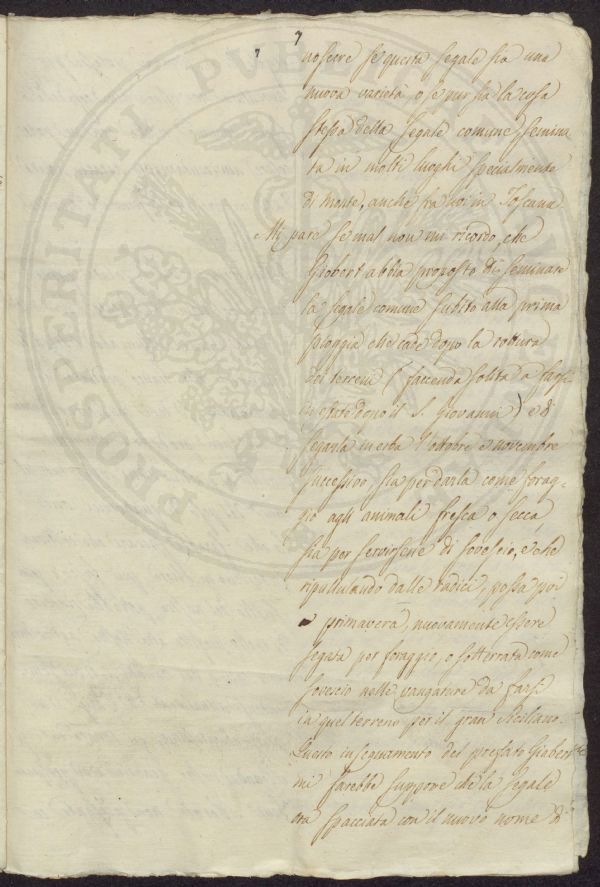 7
7
noscere se questa segale sia una
nuova varietà o se pur sia la cosa
stessa della segale comune, semina
ta in molti luoghi specialmente
di monte, anche fra noi in Toscana
Mi pare se mal non mi ricordo, che
Giobert abbia proposto di seminare
la segale comune subito alla prima
pioggia che cade dopo la rottura
dei terreni (faccenda solita a farsi
in estate dopo il S. Giovanni) e di
segarla in erba l'ottobre e novembre
successivo sia per darla come forag-
gio agli animali fresca o secca,
sia per servirsene di sovescio, e che
ripullulando dalle radici, possa poi
a primavera, nuovamente essere
segata per foraggio, o sotterrata come
sovescio nelle vangature da farsi
in quel terreno per il gran siciliano.
Questo insegnamento del prefato Giobert
mi farebbe supporre che la segale
ora spacciata con il nuovo nome di
PROSPERITATI PVBLICAE